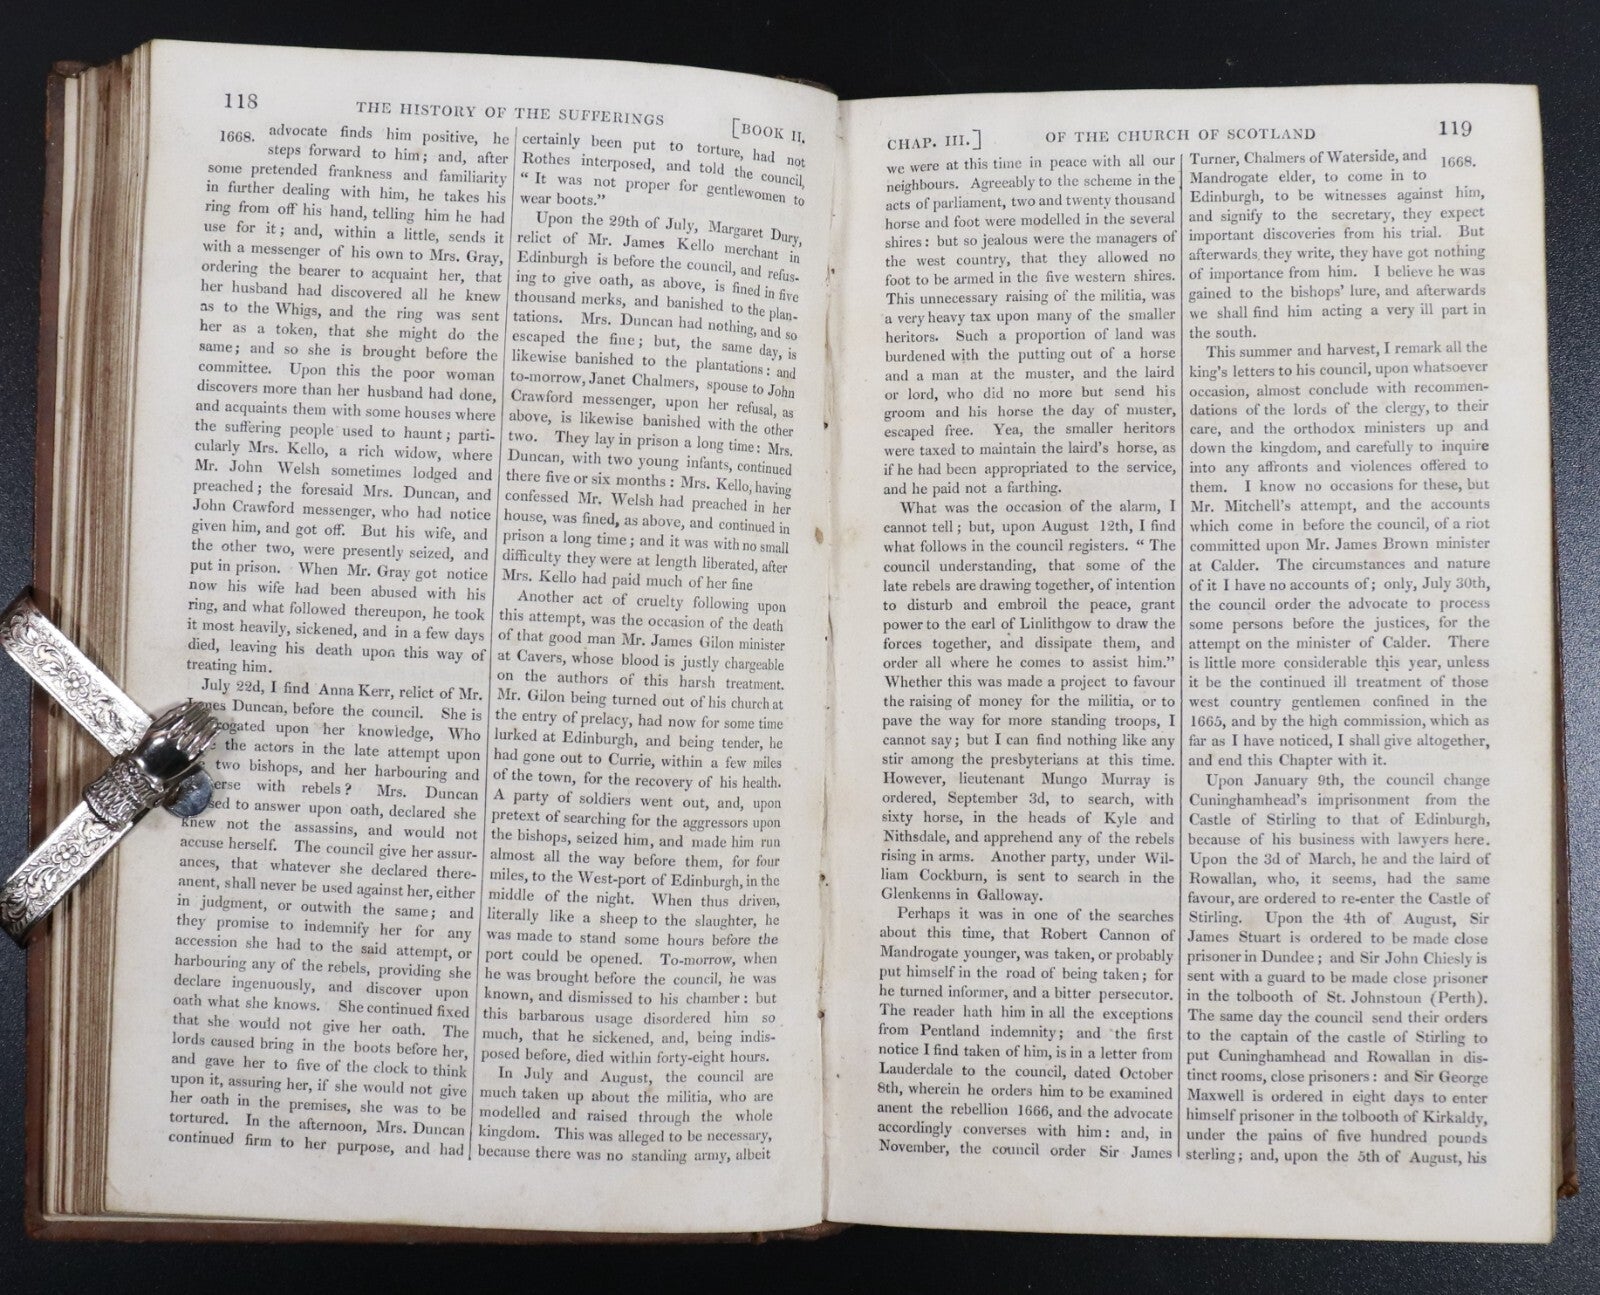 118
THE HISTORY OF THE SUFFERINGS
[BOOK II.
1668.
advocate finds him positive, he
steps forward to him; and, after
some pretended frankness and familiarity
in further dealing with him, he takes his
ring from off his hand, telling him he had
use for it; and, within a little, sends it
with a messenger of his own to Mrs. Gray,
ordering the bearer to acquaint her, that
her husband had discovered all he knew
as to the Whigs, and the ring was sent
her as a token, that she might do the
same; and so she is brought before the
committee. Upon this the poor woman
discovers more than her husband had done,
and acquaints them with some houses where
the suffering people used to haunt; parti-
cularly Mrs. Kello, a rich widow, where
Mr. John Welsh sometimes lodged and
preached; the foresaid Mrs. Duncan, and
John Crawford messenger, who had notice
given him, and got off. But his wife, and
the other two, were presently seized, and
put in prison. When Mr. Gray got notice
now his wife had been abused with his
ring, and what followed thereupon, he took
it most heavily, sickened, and in a few days
died, leaving his death upon this way of
treating him.
July 22d, I find Anna Kerr, relict of Mr.
Duncan, before the council. She is
upon her knowledge, Who
the actors in the late attempt upon
two bishops, and her harbouring and
with rebels? Mrs. Duncan
to answer upon oath, declared she
knew not the assassins, and would not
accuse herself. The council give her assur-
ances, that whatever she declared there-
anent, shall never be used against her, either
in judgment, or outwith the same; and
they promise to indemnify her for any
accession she had to the said attempt, or
harbouring any of the rebels, providing she
declare ingenuously, and discover upon
oath what she knows. She continued fixed
that she would not give her oath. The
lords caused bring in the boots before her,
and gave her to five of the clock to think
upon it, assuring her, if she would not give
her oath in the premises, she was to be
tortured. In the afternoon, Mrs. Duncan
continued firm to her purpose, and had
certainly been put to torture, had not
Rothes interposed, and told the council,
“ It was not proper for gentlewomen to
wear boots.”
Upon the 29th of July, Margaret Dury,
relict of Mr. James Kello merchant in
Edinburgh is before the council, and refus-
ing to give oath, as above, is fined in five
thousand merks, and banished to the plan-
tations. Mrs. Duncan had nothing, and so
escaped the fine; but, the same day, is
likewise banished to the plantations: and
to-morrow, Janet Chalmers, spouse to John
Crawford messenger, upon her refusal, as
above, is likewise banished with the other
two. They lay in prison a long time: Mrs.
Duncan, with two young infants, continued
there five or six months: Mrs. Kello, having
confessed Mr. Welsh had preached in her
house, was fined, as above, and continued in
prison a long time; and it was with no small
difficulty they were at length liberated, after
Mrs. Kello had paid much of her fine
Another act of cruelty following upon
this attempt, was the occasion of the death
of that good man Mr. James Gilon minister
at Cavers, whose blood is justly chargeable
on the authors of this harsh treatment.
Mr. Gilon being turned out of his church at
the entry of prelacy, had now for some time
lurked at Edinburgh, and being tender, he
had gone out to Currie, within a few miles
of the town, for the recovery of his health.
A party of soldiers went out, and, upon
pretext of searching for the aggressors upon
the bishops, seized him, and made him run
almost all the way before them, for four
miles, to the West-port of Edinburgh, in the
middle of the night. When thus driven,
literally like a sheep to the slaughter, he
was made to stand some hours before the
port could be opened. To-morrow, when
he was brought before the council, he was
known, and dismissed to his chamber: but
this barbarous usage disordered him so
much, that he sickened, and, being indis-
posed before, died within forty-eight hours.
In July and August, the council are
much taken up about the militia, who are
modelled and raised through the whole
kingdom. This was alleged to be necessary,
because there was no standing army, albeit
CHAP. III.]
OF THE CHURCH OF SCOTLAND
119
we were at this time in peace with all our
neighbours. Agreeably to the scheme in the
acts of parliament, two and twenty thousand
horse and foot were modelled in the several
shires: but so jealous were the managers of
the west country, that they allowed no
foot to be armed in the five western shires.
This unnecessary raising of the militia, was
a very heavy tax upon many of the smaller
heritors. Such a proportion of land was
burdened with the putting out of a horse
and a man at the muster, and the laird
or lord, who did no more but send his
groom and his horse the day of muster,
escaped free. Yea, the smaller heritors
were taxed to maintain the laird's horse, as
if he had been appropriated to the service,
and he paid not a farthing.
What was the occasion of the alarm, I
cannot tell; but, upon August 12th, I find
what follows in the council registers. “ The
council understanding, that some of the
late rebels are drawing together, of intention
to disturb and embroil the peace, grant
power to the earl of Linlithgow to draw the
forces together, and dissipate them, and
order all where he comes to assist him.”
Whether this was made a project to favour
the raising of money for the militia, or to
pave the way for more standing troops, I
cannot say; but I can find nothing like any
stir among the presbyterians at this time.
However, lieutenant Mungo Murray is
ordered, September 3d, to search, with
sixty horse, in the heads of Kyle and
Nithsdale, and apprehend any of the rebels
rising in arms. Another party, under Wil-
liam Cockburn, is sent to search in the
Glenkenns in Galloway.
Perhaps it was in one of the searches
about this time, that Robert Cannon of
Mandrogate younger, was taken, or probably
put himself in the road of being taken; for
he turned informer, and a bitter persecutor.
The reader hath him in all the exceptions
from Pentland indemnity; and the first
notice I find taken of him, is in a letter from
Lauderdale to the council, dated October
8th, wherein he orders him to be examined
anent the rebellion 1666, and the advocate
accordingly converses with him: and, in
November, the council order Sir James
Turner, Chalmers of Waterside, and
1668.
Mandrogate elder, to come in to
Edinburgh, to be witnesses against him,
and signify to the secretary, they expect
important discoveries from his trial. But
afterwards they write, they have got nothing
of importance from him. I believe he was
gained to the bishops' lure, and afterwards
we shall find him acting a very ill part in
the south.
This summer and harvest, I remark all the
king's letters to his council, upon whatsoever
occasion, almost conclude with recommen-
dations of the lords of the clergy, to their
care, and the orthodox ministers up and
down the kingdom, and carefully to inquire
into any affronts and violences offered to
them. I know no occasions for these, but
Mr. Mitchell's attempt, and the accounts
which come in before the council, of a riot
committed upon Mr. James Brown minister
at Calder. The circumstances and nature
of it I have no accounts of; only, July 30th,
the council order the advocate to process
some persons before the justices, for the
attempt on the minister of Calder. There
is little more considerable this year, unless
it be the continued ill treatment of those
west country gentlemen confined in the
1665, and by the high commission, which as
far as I have noticed, I shall give altogether,
and end this Chapter with it.
Upon January 9th, the council change
Cuninghamhead's imprisonment from the
Castle of Stirling to that of Edinburgh,
because of his business with lawyers here.
Upon the 3d of March, he and the laird of
Rowallan, who, it seems, had the same
favour, are ordered to re-enter the Castle of
Stirling. Upon the 4th of August, Sir
James Stuart is ordered to be made close
prisoner in Dundee; and Sir John Chiesly is
sent with a guard to be made close prisoner
in the tolbooth of St. Johnstoun (Perth).
The same day the council send their orders
to the captain of the castle of Stirling to
put Cuninghamhead and Rowallan in dis-
tinct rooms, close prisoners: and Sir George
Maxwell is ordered in eight days to enter
himself prisoner in the tolbooth of Kirkaldy,
under the pains of five hundred pounds
sterling; and, upon the 5th of August, his